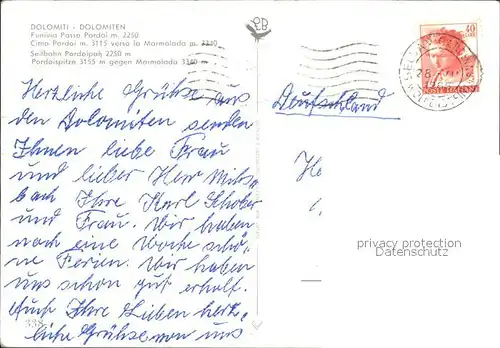 DOLOMITI - DOLOMITEN
Funivia Passo Pordoi m. 2250
Cima Pordoi m. 3115 verso la Marmolada m. 3340
Seilbahn Pordoipaß 2250 m
Pordoispitze 3155 m gegen Marmolada 3340 m
40
POSTE ITALIANE
Deutschland
Herzliche Grüße aus
den Dolomiten senden
Ihnen liebe Frau
und lieber Herr
Ihre Karl Schober
und Frau. Wir haben
noch eine Woche schö-
ne Ferien. Wir haben
uns schon gut erholt.
Auch Ihre Lieben herz-
liche Grüße von uns
privacy protection
Datenschutz
338